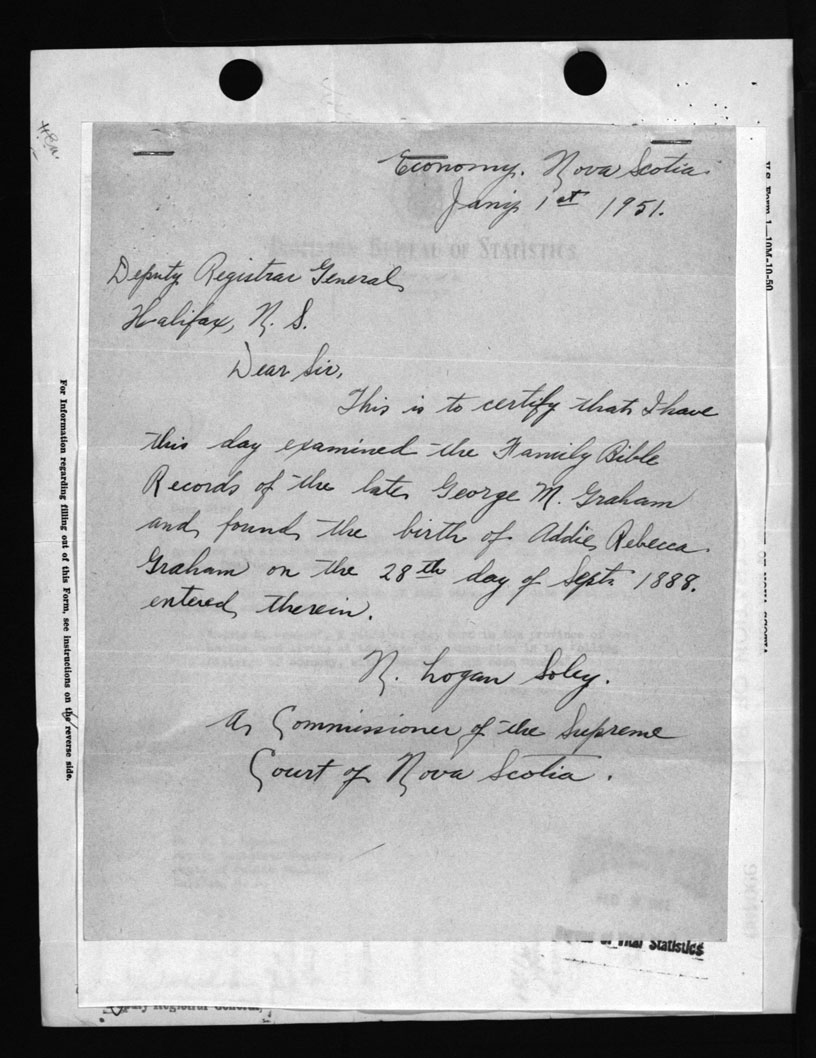 Economy. Nova Scotia.
Jan'y 1st 1951.
Dominion Bureau of Statistics
Deputy Registrar General
Halifax, N. S.
Dear Sir,
This is to certify that I have
this day examined the Family Bible
Records of the late George M. Graham
and found the birth of Addie Rebecca
Graham on the 28th day of Sept. 1888.
entered therein.
N. Logan Soley.
A Commissioner of the Supreme
Court of Nova Scotia.
of Vital Statistics
Deputy Registrar General
For Information regarding filling out of this Form, see instructions on the reverse side.
V.S. Form 1—10M-10-50